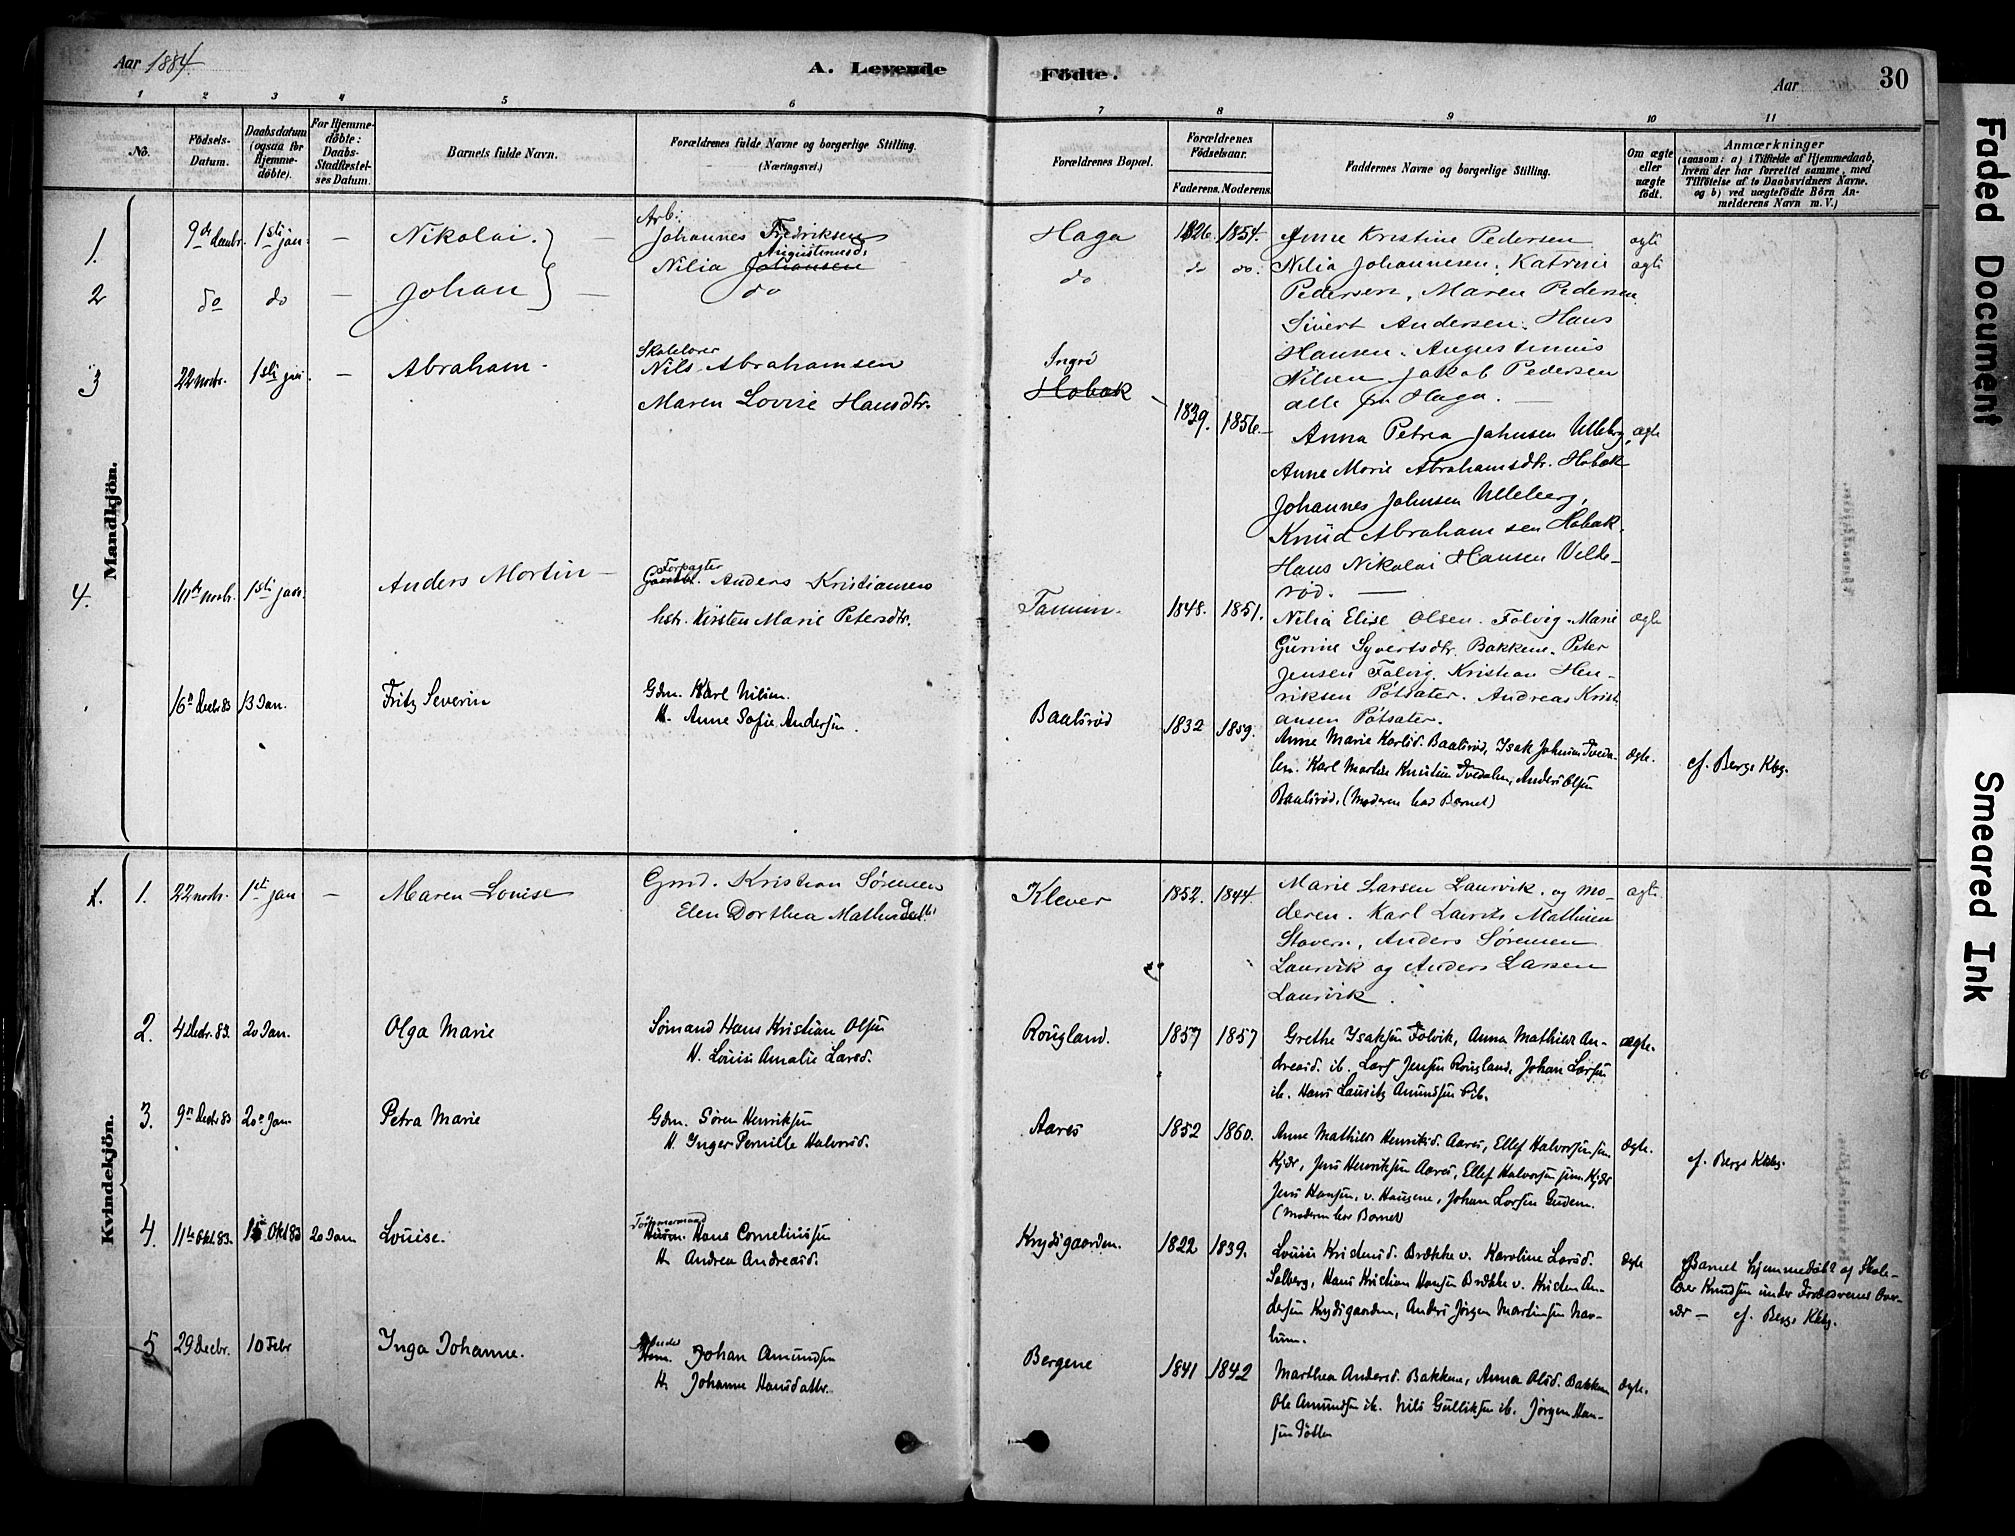 Aar 1884.
A. Levende Födte.
Aar
30
1 2 3 4 5 6 7 8 9 10 11
No.
Födsels-Datum.
Daabsdatum (ogsaa for Hjemme-döbte).
For Hjemme-döbte: Daabs-Stadfæstel-ses Datum.
Barnets fulde Navn.
Forældrenes fulde Navne og borgerlige Stilling. (Næringsvei.)
Forældrenes Bopæl.
Forældrenes Födselsaar.
Faderens. Moderens.
Faddernes Navne og borgerlige Stilling.
Om ægte eller uægte födt.
Anmærkninger
(saasom: a) i Tilfælde af Hjemmedaab,
hvem der har forrettet samme, med
Tilföielse af to Daabsvidners Navne.
og b) ved uægtefödte Börn An-
melderens Navn m. V.)
Mandkjön.
1. 9de decbr. 1ste jan. — Nikolai. — Arb. Johannes Fredriksen
Nilia Johansen Augustinusd.
Haga 1826. 1854. Anne Kristine Pedersen ægte
2 do do — Johan — do
do do do. Nilia Johannesen. Katrine ægte
Pedersen, Maren Pedersen
Sivert Andersen. Hans
Hansen. Augustinus
Nilsen Jakob Pedersen
alle fra Haga. —
3 22 novbr. 1ste jan. — Abraham. Skolelærer Nils Abrahamsen
Maren Lovise Hansdtr.
Hobæk
1839. 1856. Anna Petrea Johnsen Ulleberg, ægte
Anne Marie Abrahamsdtr. Hobæk
Johannes Johnsen Ulleberg,
Knud Abrahamsen Hobæk.
Hans Nikolai Hansen Velte-
rød. —
4. 1ste jan. Anders Martin — Forpagter Anders Kristiansen
hstr. Kirsten Marie Petersdtr.
Tanum. 1848. 1851. Nilia Elise Olsen. Folvig. Marie ægte
Gurine Syvertsdtr. Bakkene. Peter
Jensen Folvig. Kristian Hen-
riksen Pøtsater. Andreas Kristi
ansen Pøtsater.
16de Decbr 83 13 Jan. Fritz Severin Gdm. Karl Nilsen.
H. Anne Sofie Andersen.
Baalsrød 1832 1859. Anne Marie Karlsd. Baalsrød, Isak Johnsen Tveda- ægte. cf. Bergs Kbg.
len. Karl Martin Knutsen Tvedalen, Anders Olsen
Baalsrød. (Moderen bar Barnet)
Kvindekjön.
1. 1. 22 novbr. 1ste jan — Maren Louise Gmd. Kristian Sørensen
Elen Dorthea Mathisdatter
Klever 1852. 1844. Marie Larsen Laurvik. og mo- ægte
deren. Karl Laurits Mathisen
Stavern, Anders Sørensen
Laurvik og Anders Larsen
Laurvik.
2. 4 Decbr. 83. 20 Jan. Olga Marie Sømand Hans Kristian Olsen
H. Louise Amalie Larsd.
Rougland. 1857 1857 Grethe Isaksen Folvik, Anna Mathilde An- ægte.
dreasd. ib. Lars Jensen Rougland, Johan Larsen
ib. Hans Lauritz Amundsen ib.
3. 9de Decbr 83 20de Jan Petra Marie Gdm. Søren Henriksen
H. Inger Pernille Halvorsd.
Aarøs 1852 1860. Anne Mathilde Henriksd. Aarøs, Ellef Halvorsen sen. ægte. cf. Bergs Kbg.
Kjær, Jens Henriksen Aarøs, Ellef Halvorsen jun. Kjær
Jens Hansen, v. Haugene, Johan Larsen Gudem.
(Moderen bar Barnet)
4. 11te Okt 83. 15de Okt 83 20 Jan Louise. Tømmermand Hans Corneliussen
H. Andrea Andreasd.
Krydsgaarden. 1822 1839. Louise Kristensd. Brække v. Karoline Larsd. ægte
Solberg, Hans Kristian Hansen Brække v. Kristen An-
dersen Krydsgaarden, Anders Jørgen Martinsen Nav-
lum.
Barnet hjemmedøbt af Skole-
lærer Knudsen under Forældrenes Over-
vær — cf. Bergs Kbg.
5 29 Decbr. 10 Febr Inga Johanne. Johan Amundsen
H. Johanne Hansdatter.
Bergene 1841 1842 Marthea Andersd. Bakkene, Anna Olsd. Bakken ægte.
Ole Amundsen ib. Nils Gulliksen ib. Jørgen Han-
sen
Faded Document
Smeared Ink